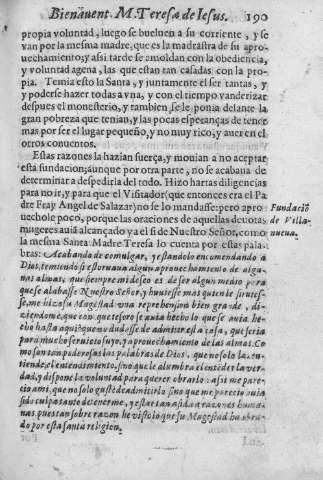 Bienauent. M. Teresa de Iesus. 190
propia voluntad, luego se bueluen a su corriente, y se
van por la mesma madre, que es la madrastra de su apro-
uechamiento; y asi tarde se amoldan con la obediencia,
y voluntad agena, las que estan tan casadas con la pro-
pia. Temia esto la Santa, y juntamente el ser tantas, y
y poderse hazer todas a vna, y con el tiempo vanderizar
despues el monesterio, y tambien se le ponia delante la
gran pobreza que tenian, y las pocas esperanças de tener
mas por ser el lugar pequeño, y no muy rico, y auer en el
otros conuentos.
Estas razones la hazian fuerça, y mouian a no aceptar
esta fundacion; aunque por otra parte, no se acabaua de
determinar a despedirla del todo. Hizo hartas diligencias
para no ir, y para que el Visitador (que entonces era el Pa
dre Fray Angel de Salazar) no se lo mandasse: pero apro
uechole poco, porque las oraciones de aquellas deuotas
mugeres auia alcançado ya el si de Nuestro Señor, como
la mesma Santa Madre Teresa lo cuenta por estas pala-
bras: Acabando de comulgar, y estandolo encomendando a
Dios, temiendo si estoruaua algun aprouechamiento de algu-
nas almas, que siempre mi deseo es de ser algun medio para
que se alabasse Nuestro Señor, y huuiesse mas quien le siruies-
se, me hizo su Magestad vna reprehension bien grande, di-
ziendome, que con que tesoro se auia hecho lo que se auia he-
cho hasta aqui: que no dudasse de admitir esta casa, que seria
para mucho seruicio suyo, y aprouechamiento de las almas. Co
mo son tan poderosas las palabras de Dios, que no solo las en-
tiende el entendimiento, sino que le alumbra a entender la ver
dad, y dispone la voluntad para querer obrarlo: asi me pare-
cio a mi, que no solo gustè de admitirlo, sino que me parecio auia
sido culpa tanto detenerme, y estar tan asida a razones huma-
nas, pues tan sobre razon he visto lo que su Magestad ha obra-
do por esta santa religion.
Fundaciõ
de Villa-
nueua.